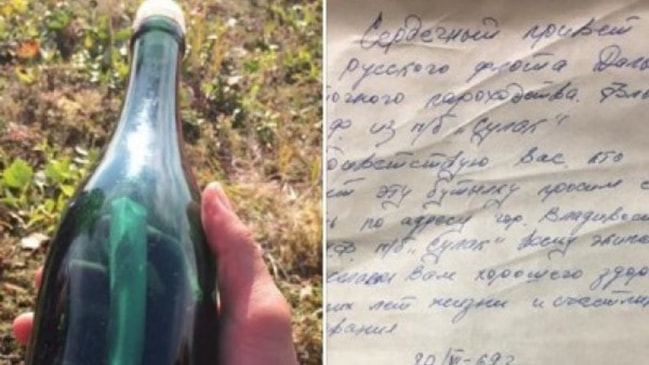 Сердечный привет
русского флота Даль
очного пароходства.
ф. из п/б „Сулак"
ветствую Вас, кто
ет эту бутылку просим с
ь по адресу гор. Владивос
ф п/б „Сулак" всему экипа
Вам хорошего здор
их лет жизни и счастли
вания